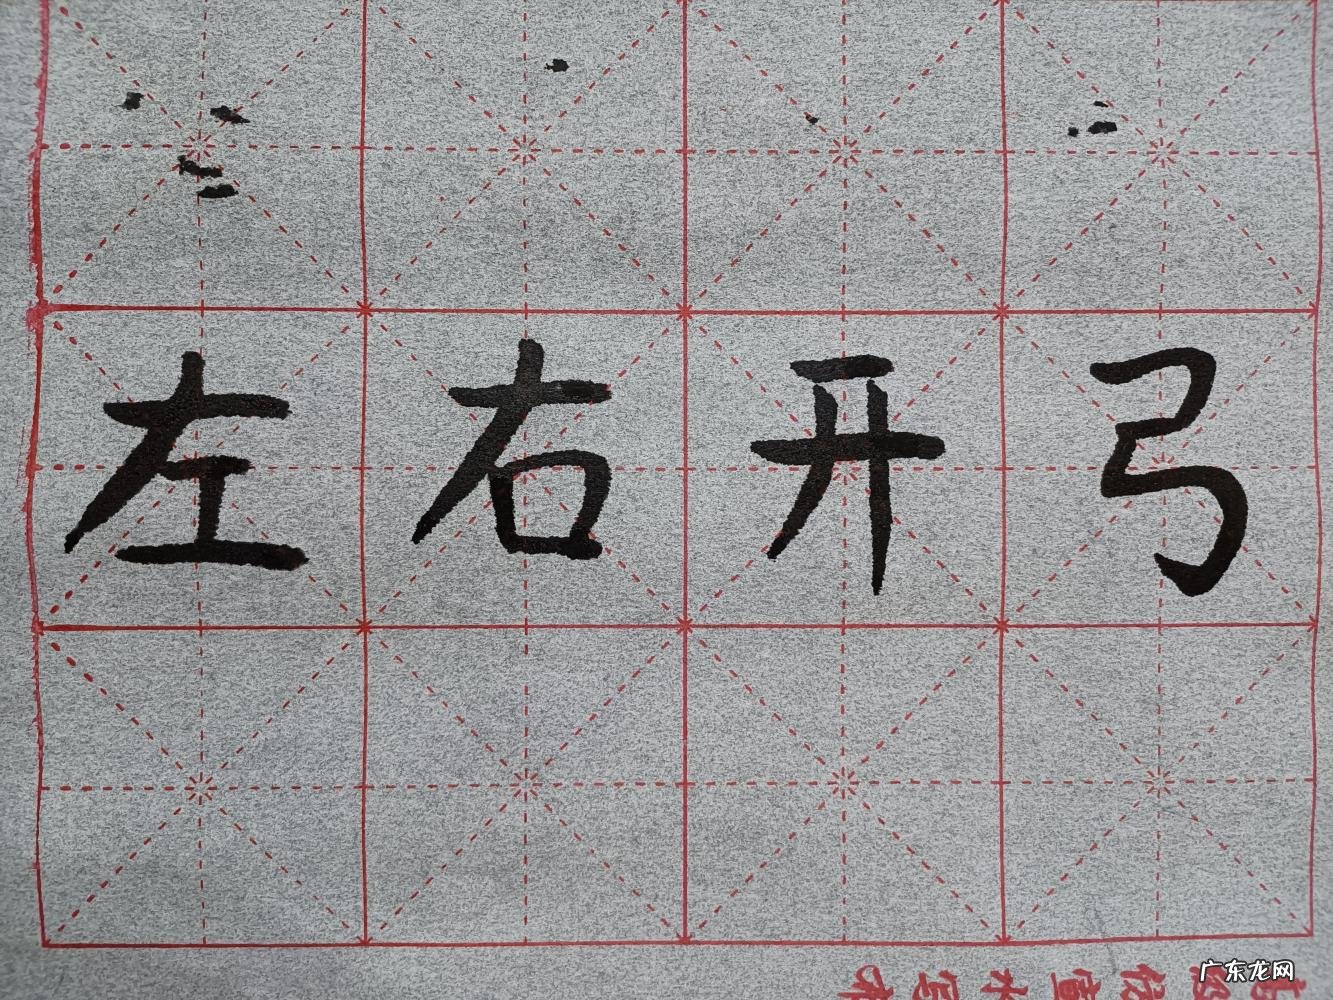 左右开弓
广东龙网